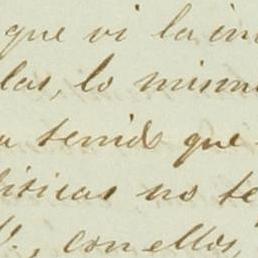 que vi la in
las, lo mism
a tenido que
íticas no te
V., con ellos,